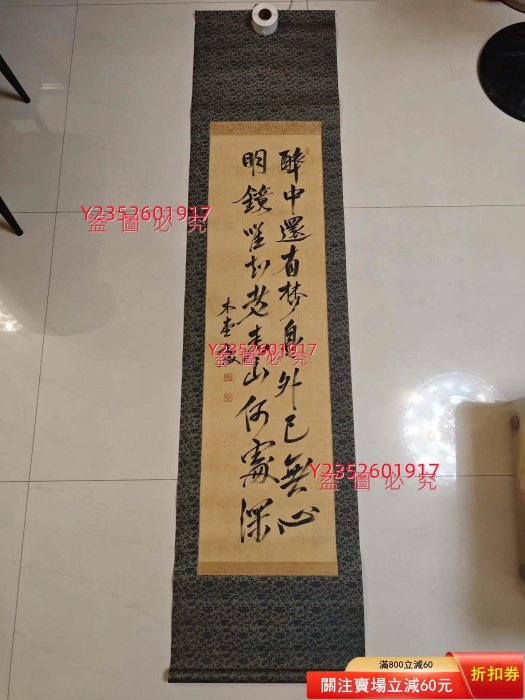 醉中還有夢身外已無心
明鏡唯知老青山何處深
木堂毅
Y2352601917
盜圖必究
Y2352601917
盜圖必究
Y2352601917
盜圖必究
滿800立減60
關注賣場立減60元
折扣券